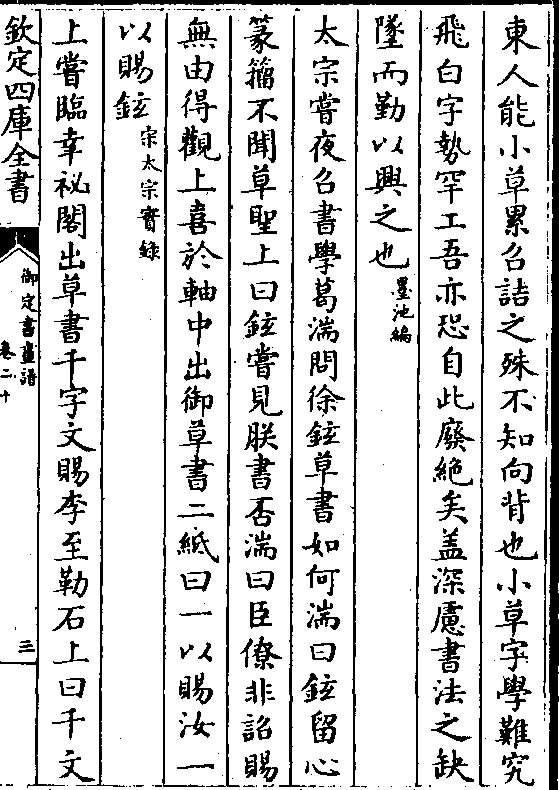 東人能小草累召詰之殊不知向背也小草字學難究
飛白字勢罕工吾亦恐自此廢絶矣盖深慮書法之缺
墜而勤以興之也墨池編
太宗嘗夜召書學葛湍問徐鉉草書如何湍曰鉉留心
篆籀不聞草聖上曰鉉嘗見朕書否湍曰臣僚非詔賜
無由得觀上喜於軸中出御草書二紙曰一以賜汝一
以賜鉉宋太宗實錄
上嘗臨幸祕閣出草書千字文賜李至勒石上曰千文
欽定四庫全書
御定書畫譜
卷二十
三